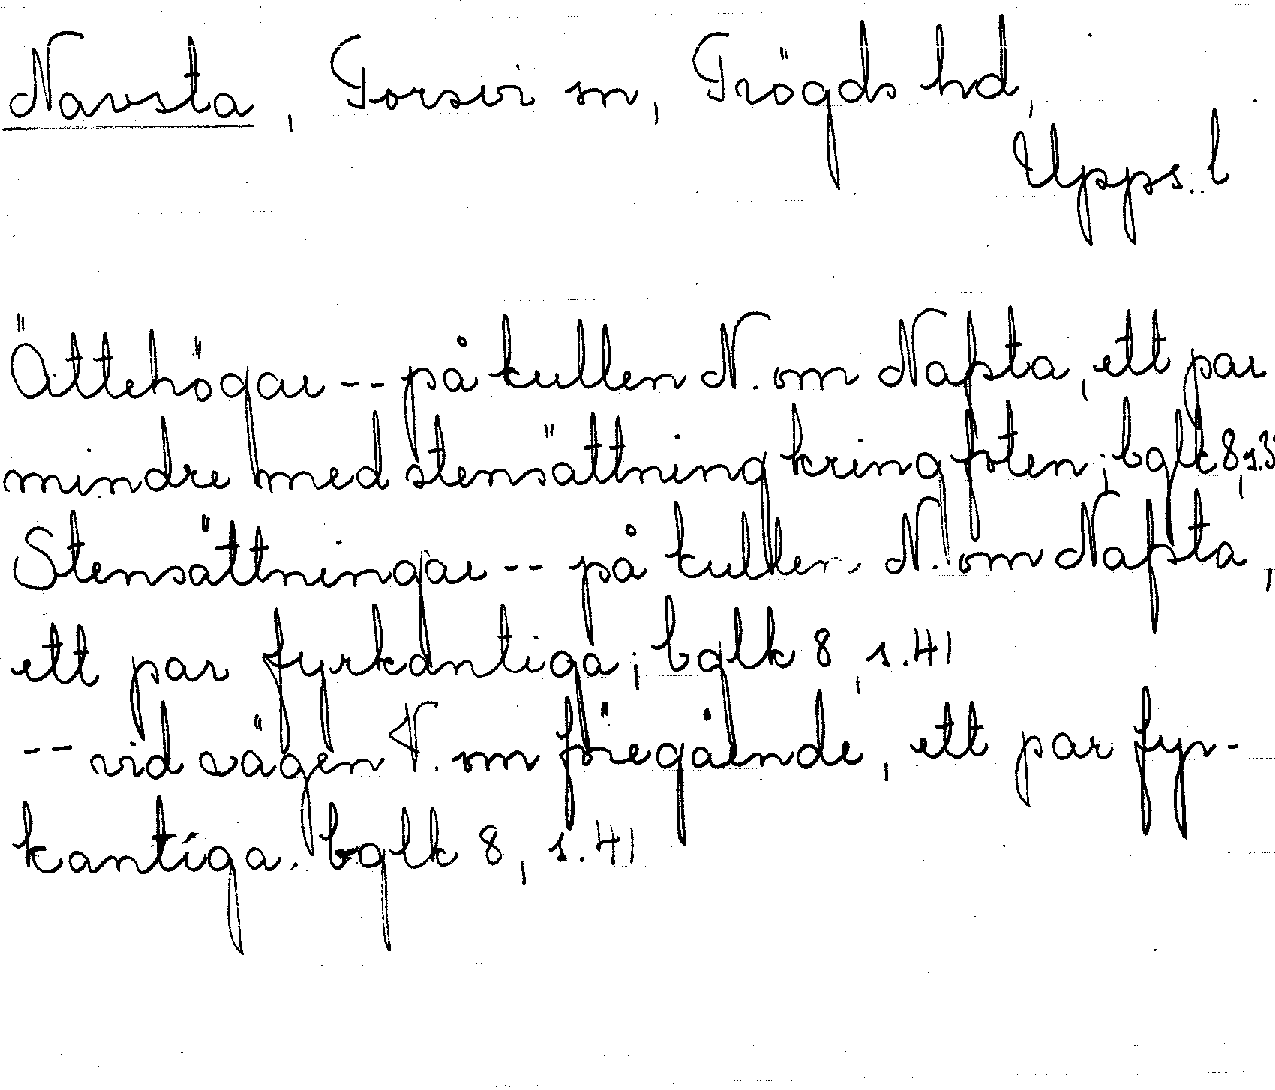 Navsta, Torsvi sn, Trögds hd,
Upps. l
Ättehögar -- på kullen N. om Nafsta, ett par
mindre med stensättning kring foten; bglk 8, s. 3
Stensättningar -- på kullen N. om Nafsta,
ett par fyrkantiga; bglk 8, s. 41
-- vid vägen N. om föregående, ett par fyr-
kantiga. bglk 8, s. 41